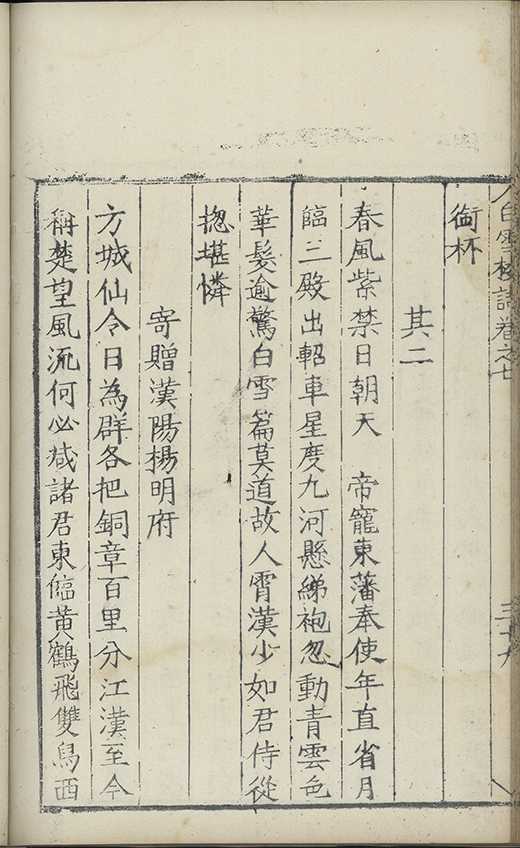 白雪樓詩卷之七
三十九
銜杯
其二
春風紫禁日朝天　帝寵東藩奉使年直省月
臨三殿出軺車星度九河懸綈袍忽動青雲色
華髮逾驚白雪篇莫道故人霄漢少如君侍從
揔堪憐
寄贈漢陽楊明府
方城仙令日為群各把銅章百里分江漢至今
稱楚望風流何必减諸君東臨黃鶴飛雙舄西